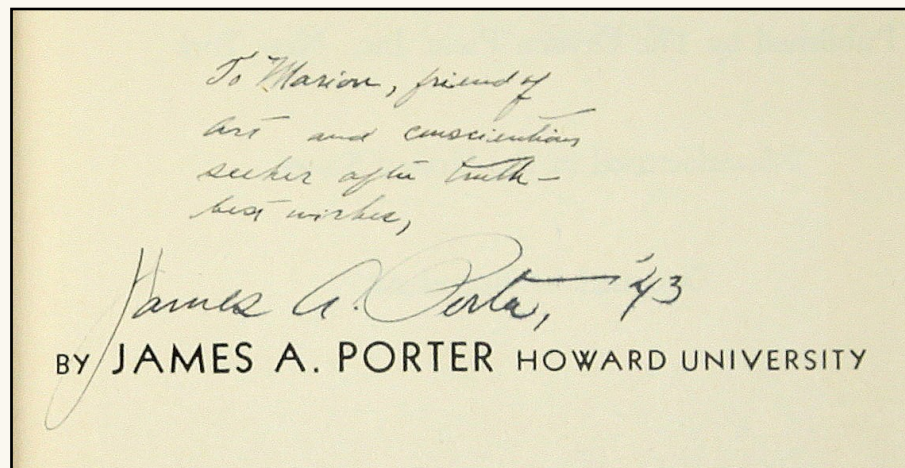 To Marion, friend of
art and conscientious
seeker after truth—
best wishes,
James A. Porter, '43
BY JAMES A. PORTER HOWARD UNIVERSITY